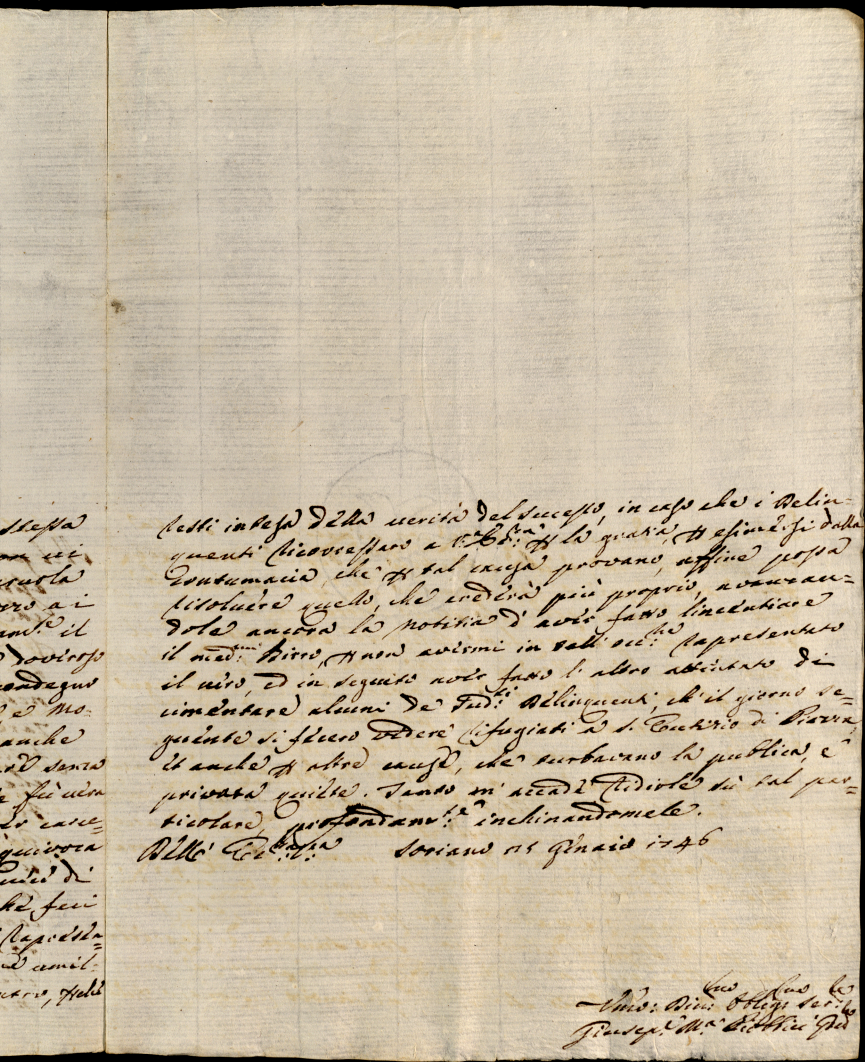 stessa
non vi
scuola
rzo a i
am:te il
doviroso
condegno
è Mo-
anche
senza
e fù vera
carce-
quivoca
di
hè feci
rapresen-
umil-
testi intesa della verità del successo, in caso che i Delin-
quenti ricorressero a la grazia esimersi dalla
Contumacia, che tal causa provano, affine possa
risolvere quello, che crederà più proprio, avanzan-
dole ancora la notitia d'aver fatto licentiare
il med:mo Birro, non avermi in tall' occ:ne rapresentato
il vero, ed in seguito aver fatto l'altro attentato di
cimentare alcuni de sud:ti Delinquenti, ch'il giorno se-
guente si fecero vedere rifugiati à S. Eutizio di Piazza,
et anche altre cause, che turbavano la publica, e
privata quiete. Tanto m'accade ridirle sù tal par-
ticolare profondam:te inchinandomele.
Dell' Soriano 15 Genaio 1746
Umo: Divo: Obligo: Ser:re
Giusep:e M:a